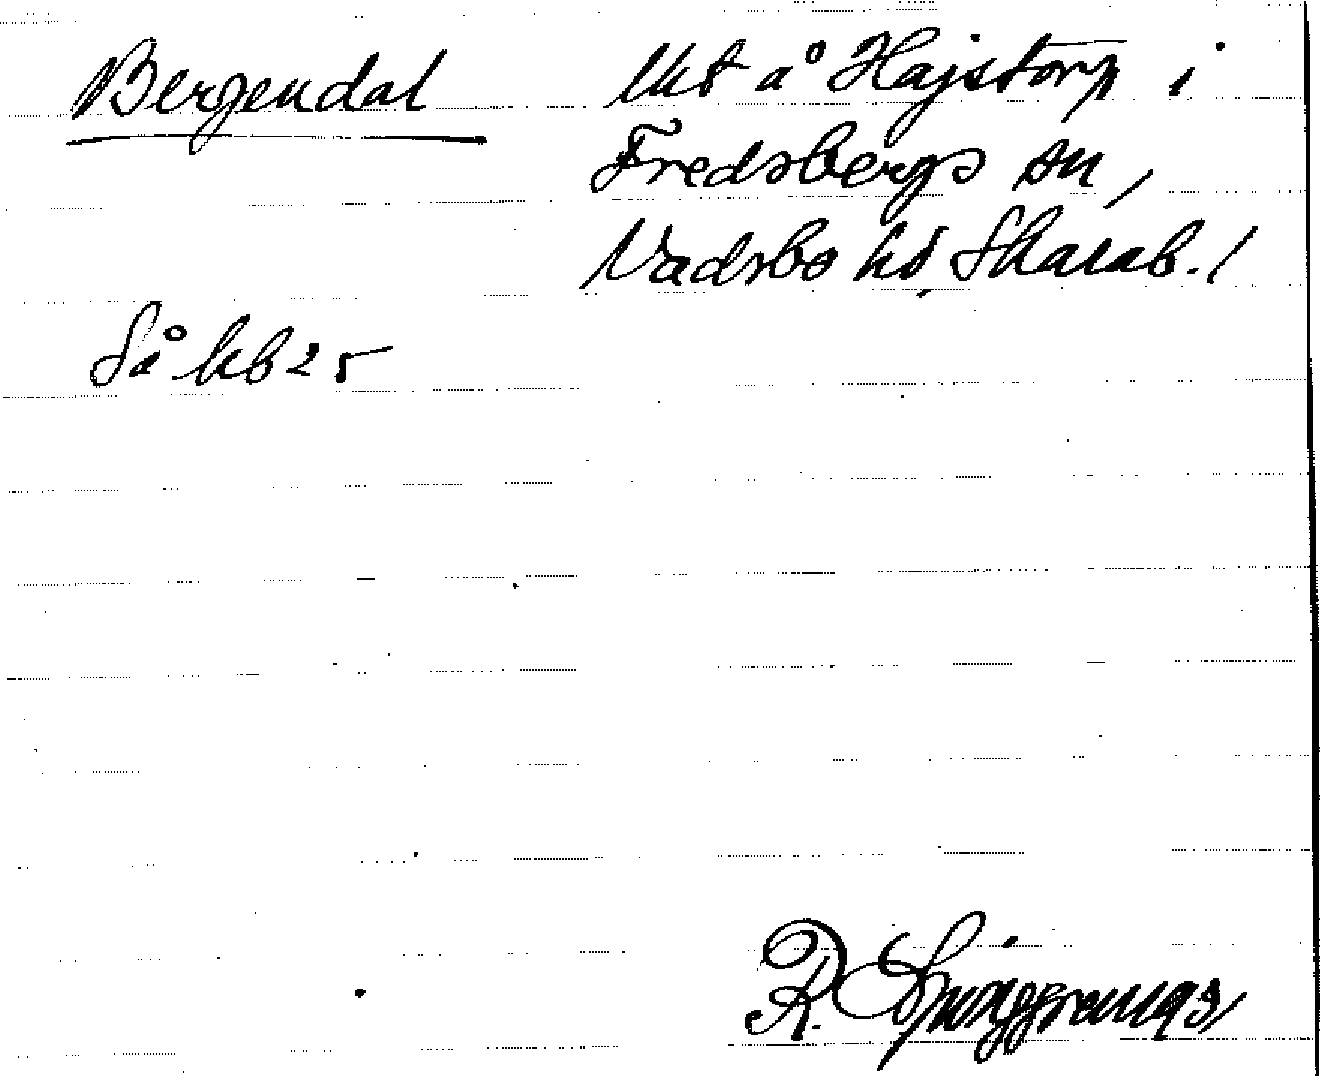 Bergendal Ukt å Hajstorp i
Fredsbergs sn,
Vadsbo hd, Skarab./
Så kb 25
R.